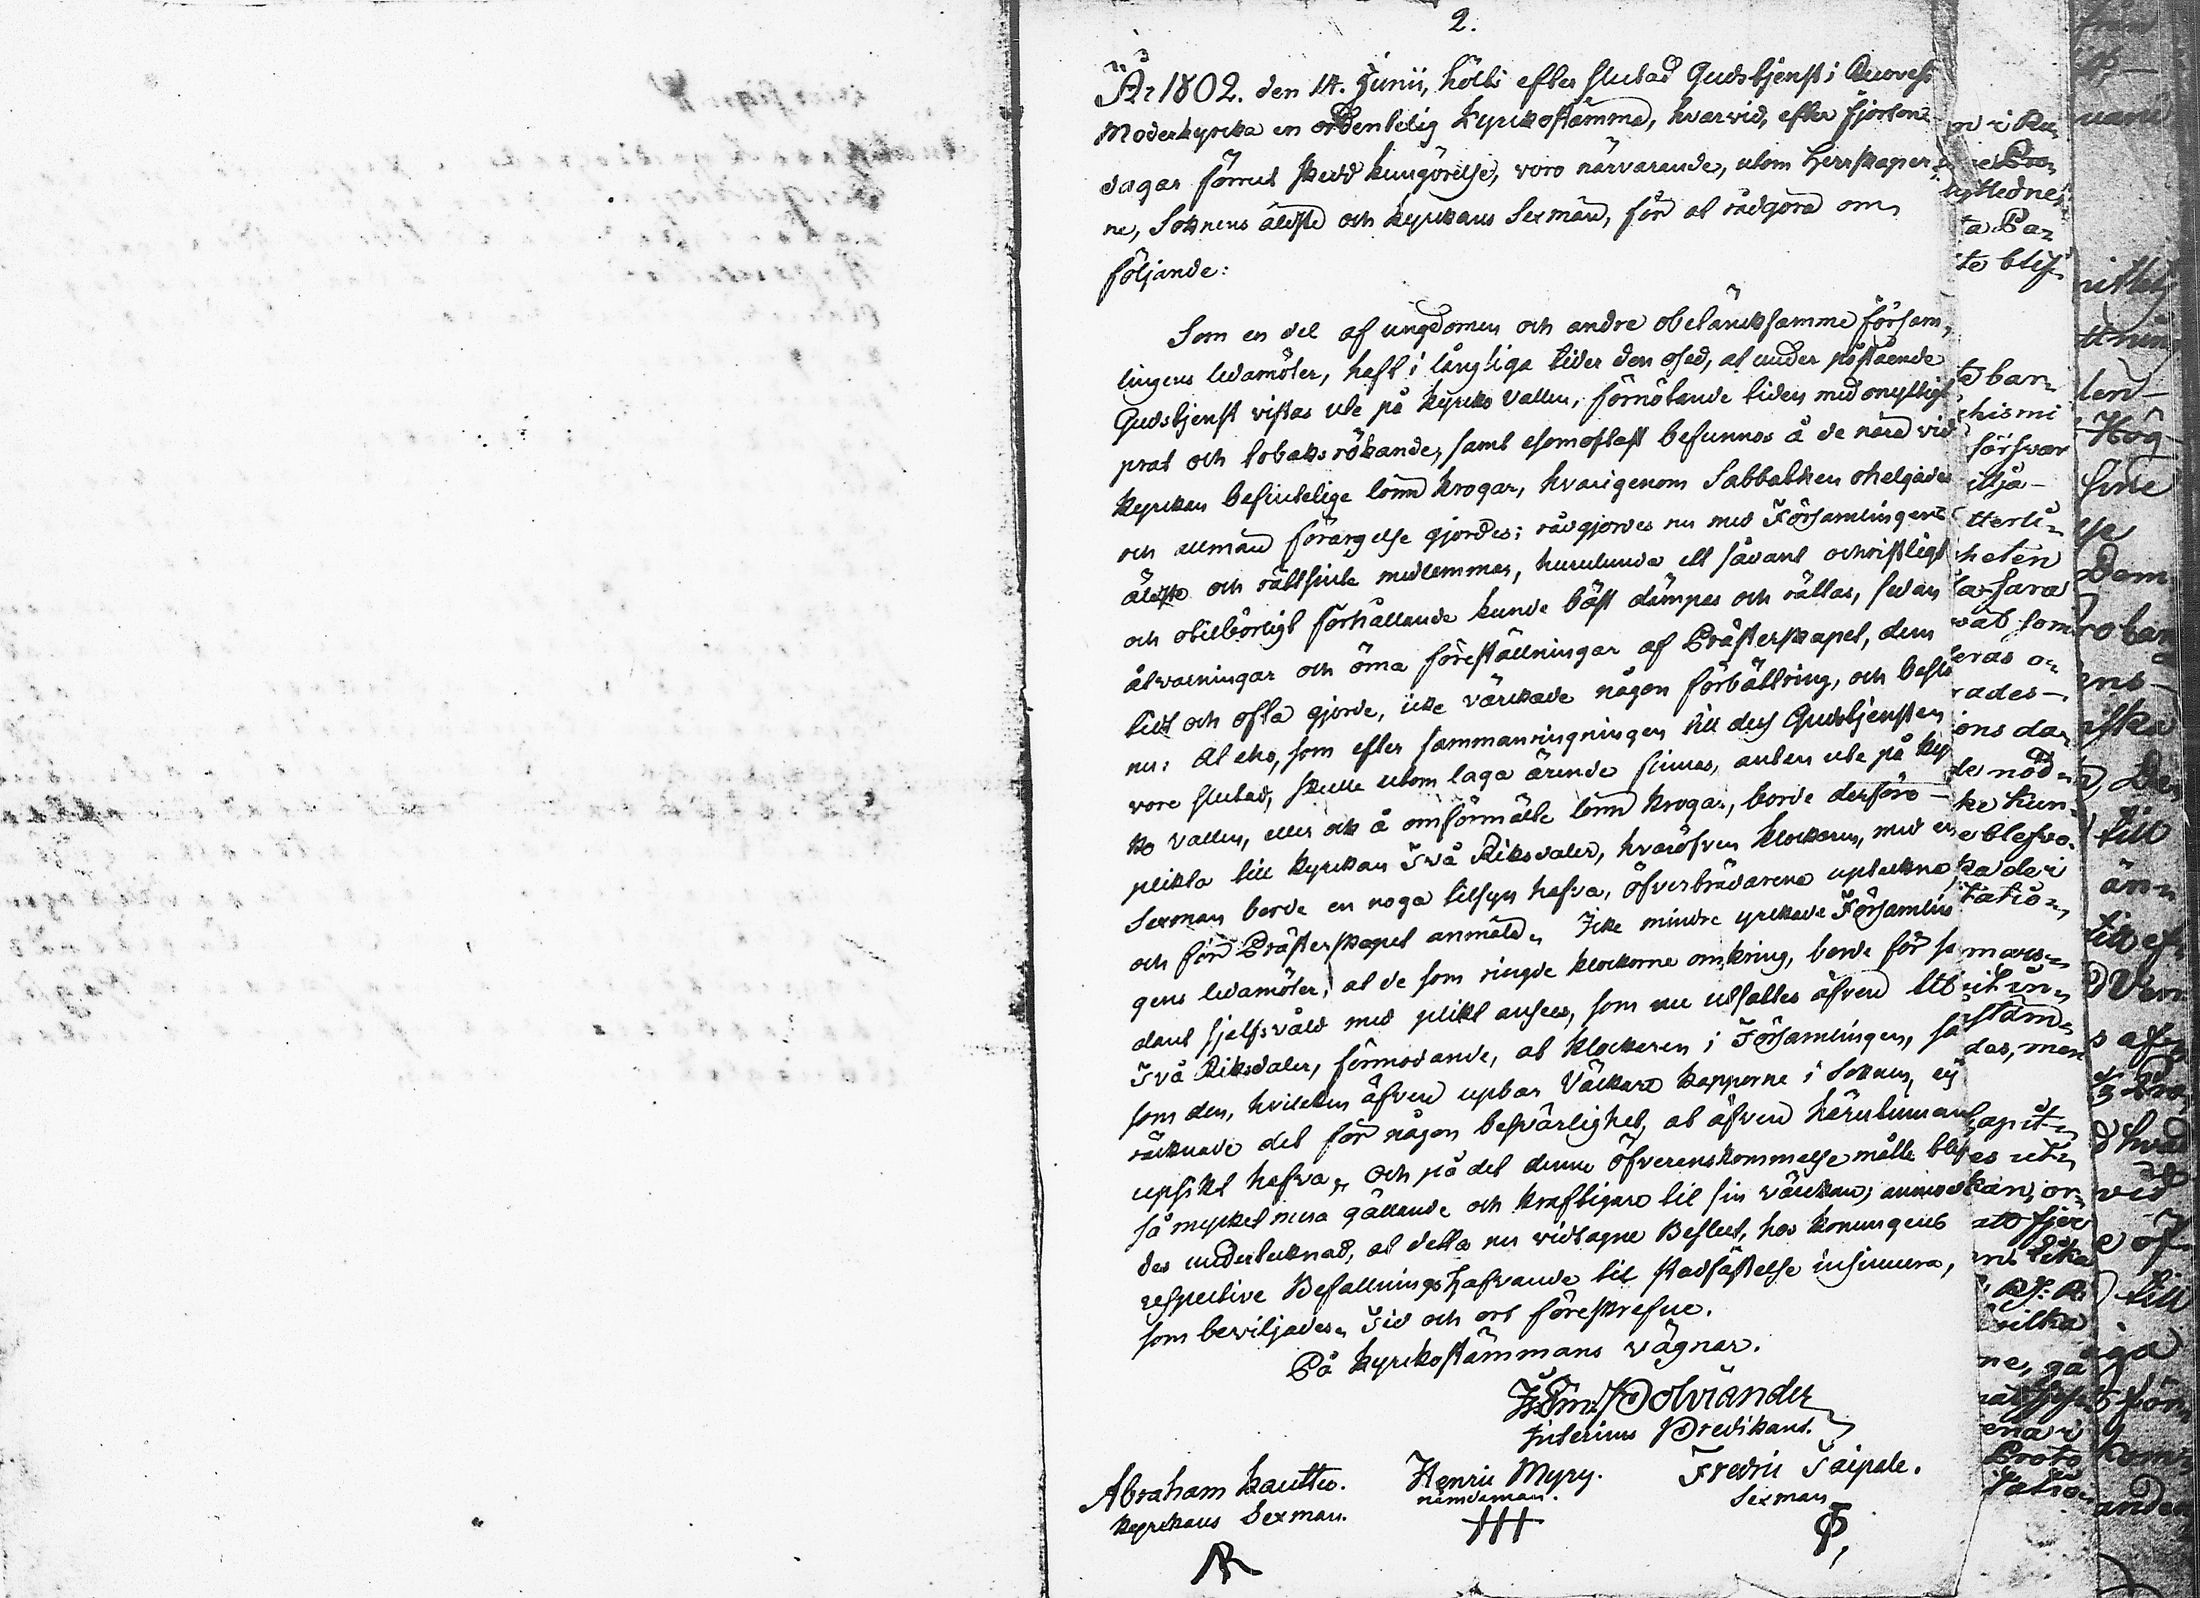 2.
År 1802. den 14. Junii, hölts efter slutad Gudstjenst i Ruovesi
Moderkyrka en ordentelig Kyrkostämma, hvarvid, efter fjorton
dagar förrut skedd kungörelse, voro närvarande, utom Herrskaper-
ne, Soknens äldste och kyrkans Sexmän, för at rådgöra om
följande:
Som en del af ungdomen och andre obetänksamme försam-
lingens ledamöter, haft i långliga tider den osed, at under påstående
Gudstjenst vistas ute på Kyrko Vallen, förnötande tiden med onyttigt
prat och tobaks rökande, samt esomoftast befunnos å de nära vid
Kyrkan befintelige lönn krogar, hvarigenom Sabbathen ohelgades
och allmän förargelse gjordes; rådgjordes nu med Församlingens
äldste och rättsinte medlemmar, hurulunda ett sådant ochristligt
och otilbörligt förhållande kunde bäst dämpas och rättas, sedan
åtvarningar och öma föreställningar af Prästerskapet, dem
tidt och ofta gjorde, icke värckade någon förbättring, och beslöts
nu: At eho, som efter sammanringningen till dess Gudstjensten
vore slutad, skulle utom laga ärende finnas, anten ute på Kyr
ko vallen, eller ock å omförmälte lönn krogar, borde derföre
plikta till kyrkan Två Riksdaler, hvaröfver klockaren, med en
Sexman borde en noga tilsyn hafva, öfverträdarena upteckna
och för Prästerskapet anmäla. Icke mindre yrckade Församlin
gens ledamöter, at de som ringde klockorne omkring, borde för så
dant sjelfsvåld med plikt anses, som nu utsattes äfven till
Två Riksdaler, förmodande, at klockaren i Församlingen, så
som den, hvilcken äfven upbar Väckare kapporne i Soknen, ej
räcknade det för någon besvärlighet, at äfven härutinnan
upsikt hafva. Och på det denne öfverenskommelse måtte blif
så mycket mera gällande och kraftigare til sin värckan; anmod
des undertecknad, at detta nu vidtagne Beslut, hos Konungens
respective Befallningshafvande til stadfästelse insinuera,
som beviljades. Tid och ort föreskrefne.
På Kyrckostämmans vägnar.
Polviander
Interims Predikant.
Abraham Kautto. Henric Myry. Fredric Taipale.
kyrkans Sexman. nämdeman. Sexman